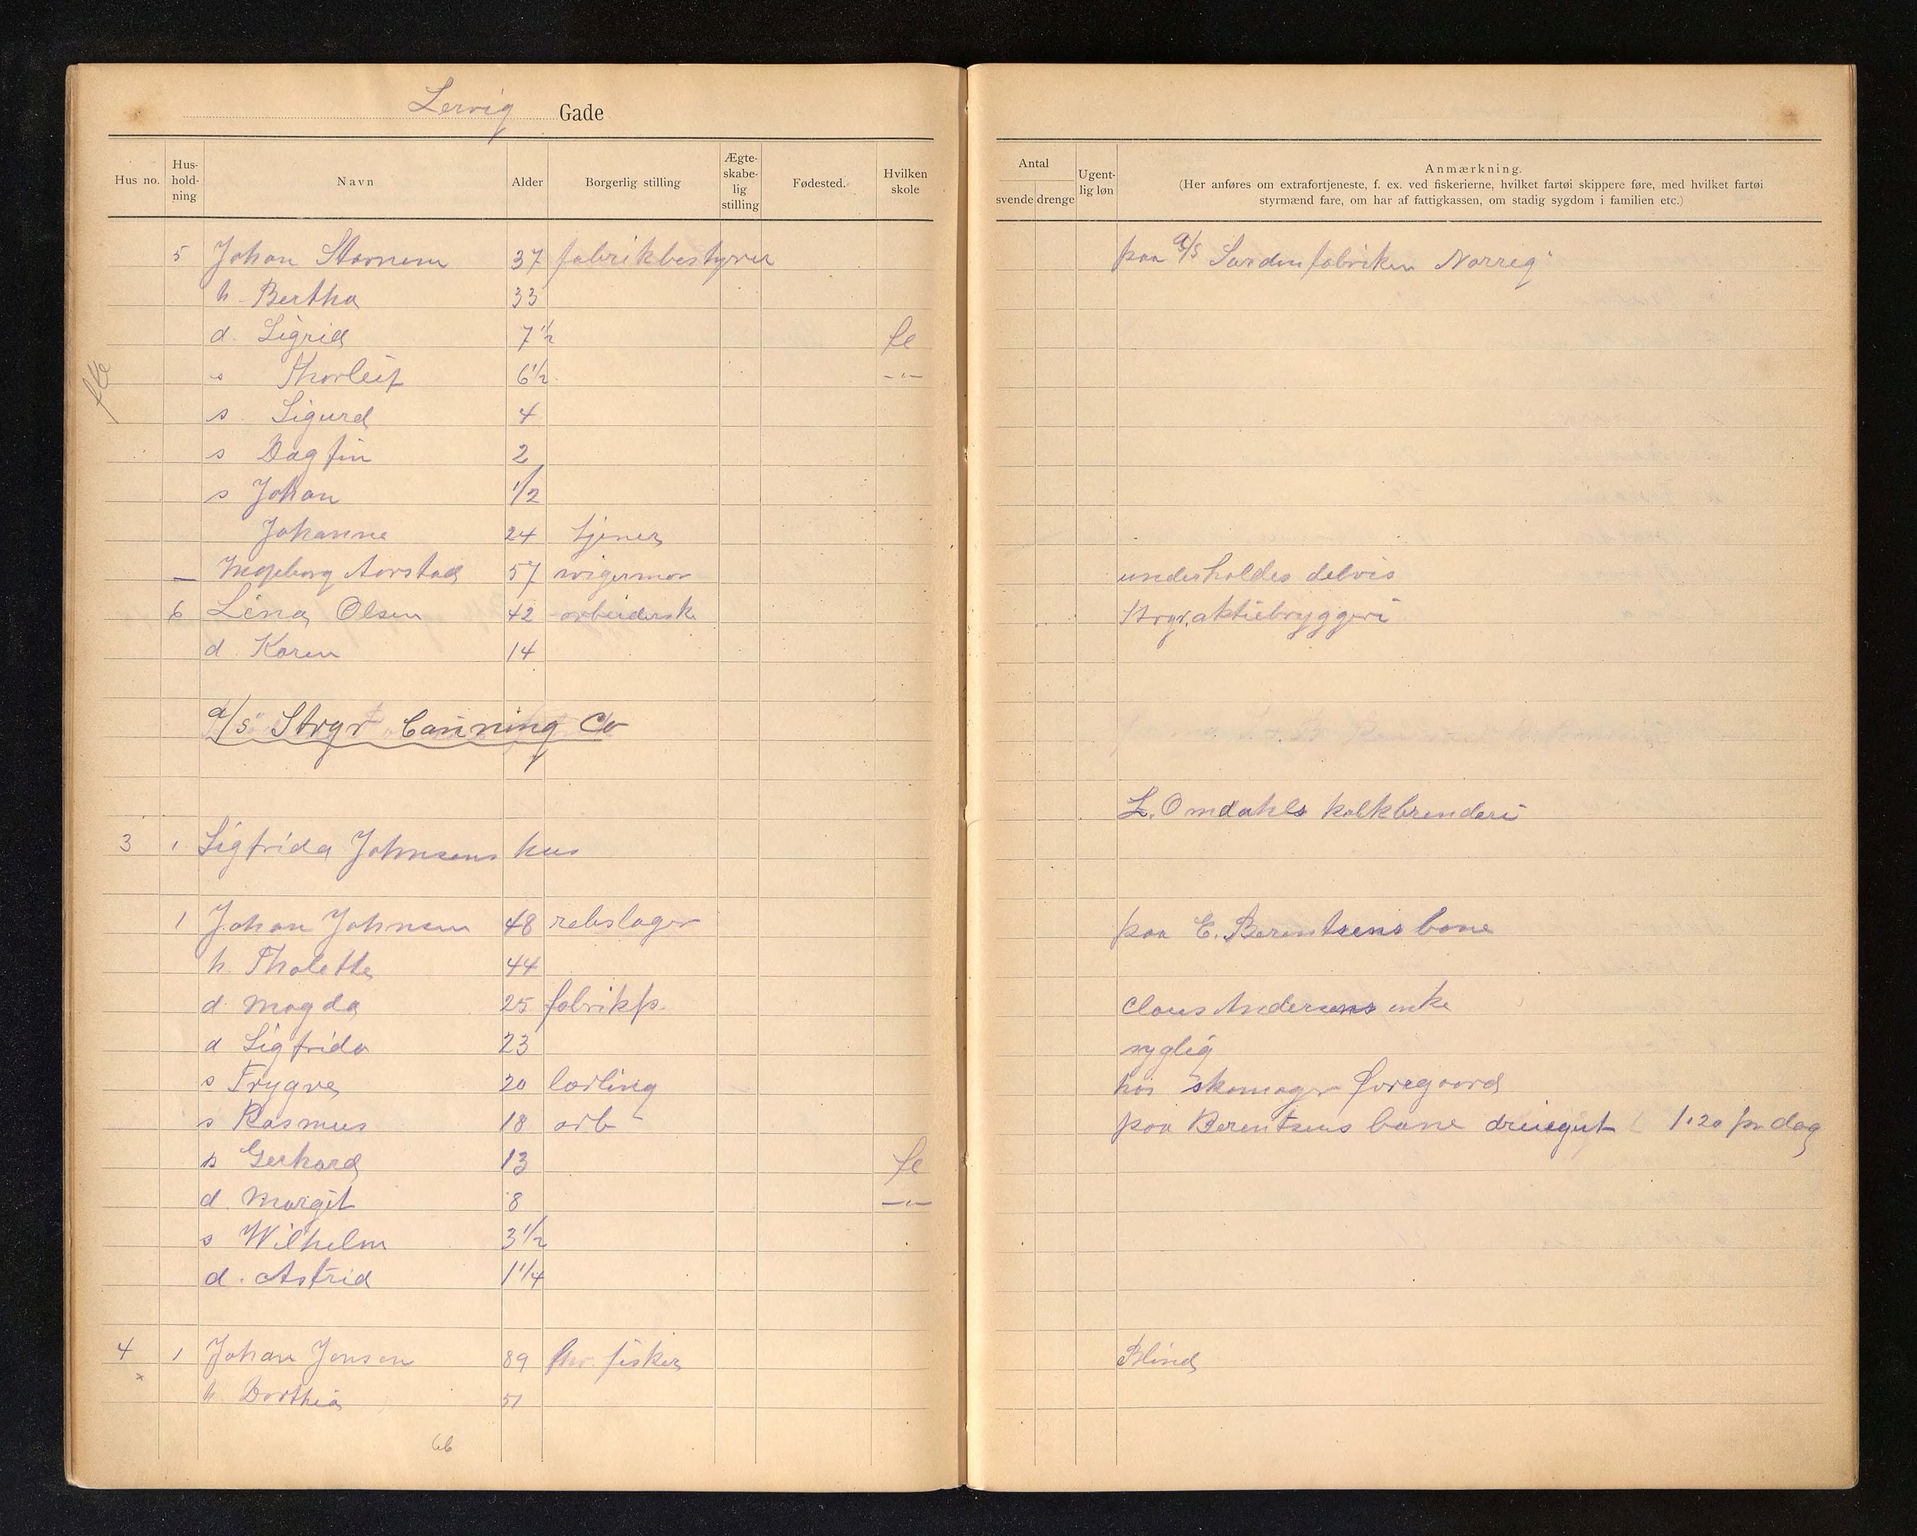 Lervig Gade
Hus no. Hus-hold-ning Navn Alder Borgerlig stilling Ægte-skabe-lig stilling Fødested. Hvilken skole Antal svende drenge Ugent-lig løn Anmærkning.
(Her anføres om extrafortjeneste, f. ex. ved fiskerierne, hvilket fartøi skippere føre, med hvilket fartøi
styrmænd fare, om har af fattigkassen, om stadig sygdom i familien etc.)
5 Johan Stornem 37 fabrikbestyrer paa a/s Sardinfabriken Norreg"
h. Bertha 33
d. Sigrid 7 1/2 fl
s Thorleif 6 1/2 -"-
s. Sigurd 4
s Dagfin 2
s Johan 1/2
Johanne 24 tjener
— Ingeborg Aarstad 57 svigermor underholdes delvis
6 Lina Olsen 42 arbeidersk Stvgr. aktiebryggeri
d Karen 14
a/s Stvgr Canning Co
L. Omdahls kalkbrenderi
3 1 Sigfrida Johnsens hus
1 Johan Johnsen 48 rebslager paa E. Berentsens bane
h. Tholette 44
d. Magda 25 fabrikp. Claus Andersens enke
d Sigfrida 23 syglig
s Trygve 20 lærling hos skomager Øvregaard
s Rasmus 18 arb - paa Berentsens bane dreiegut 1.20 pr dag
s Gerhard 13 fl
d. Margit 8 —"—
s Wilhelm 3 1/2
d. Astrid 1 1/4
4 1 Johan Jonsen 89 fhv. fisker Blind
x h. Dorthea 51
66